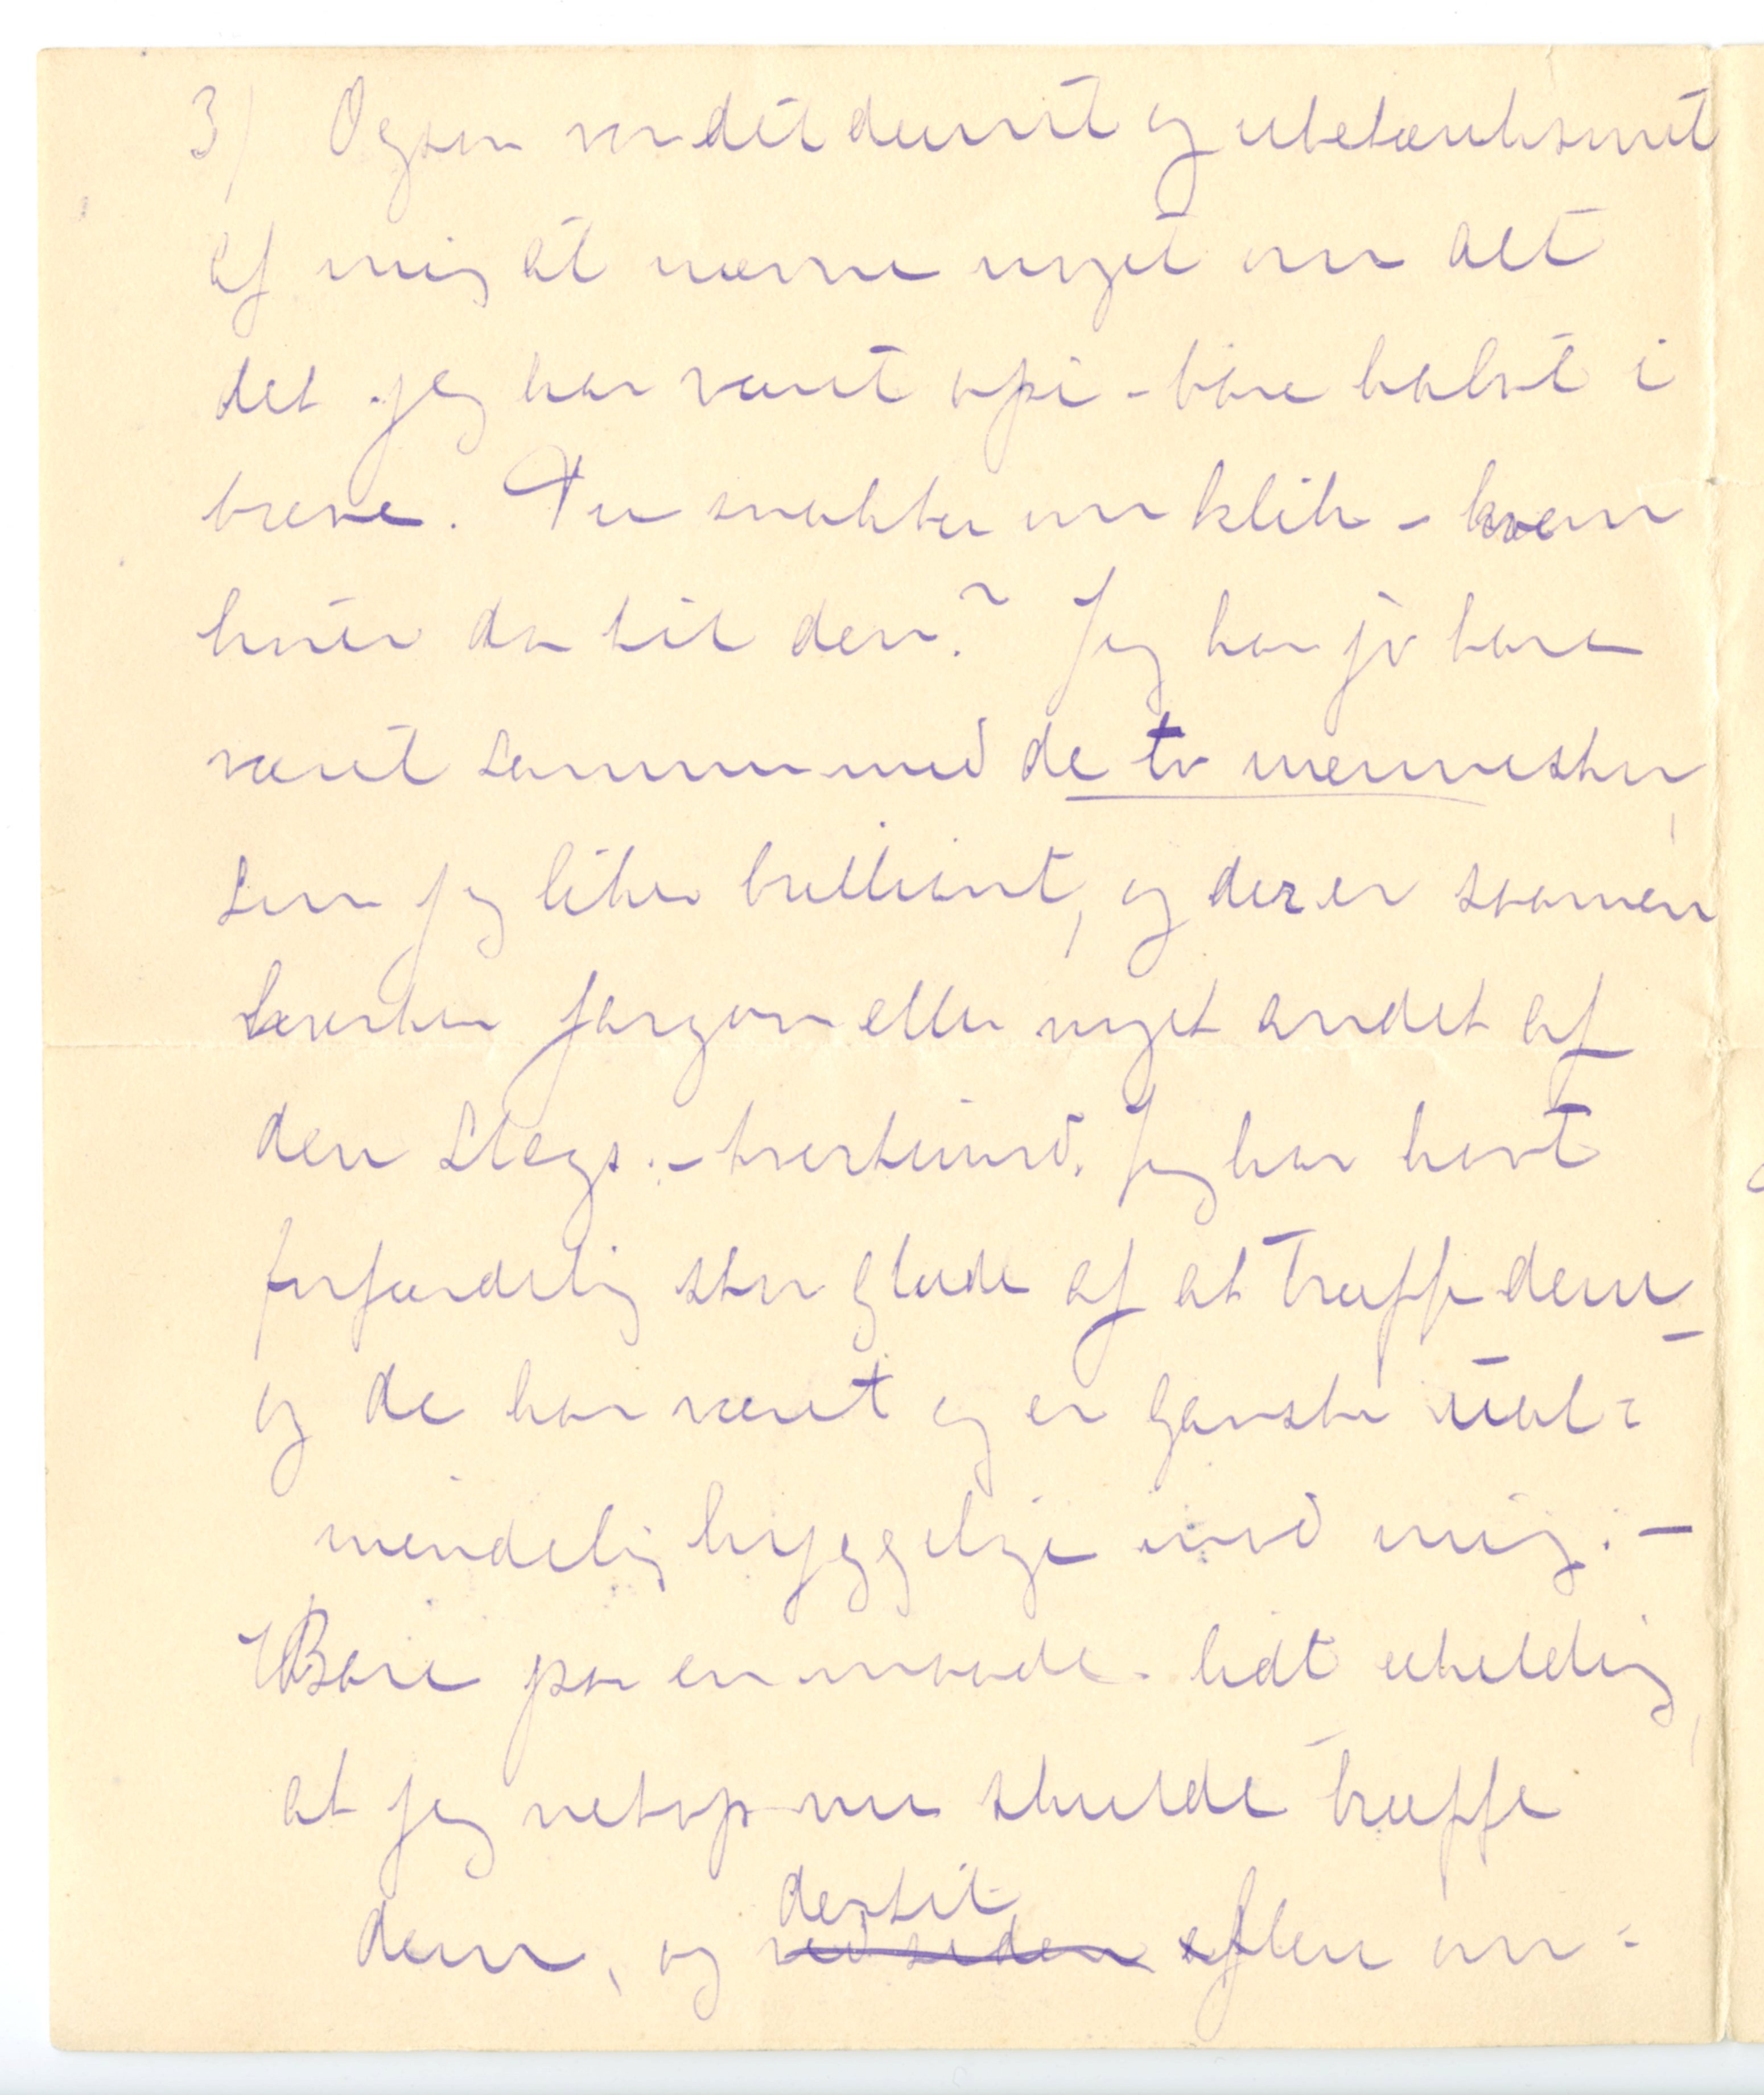 3) Ogsaa var det dumt og ubetænksomt
af mig at nævne noget om alt
det jeg har været opi - bare halvt i
breve. Du snakker om klik - hvem
hører da til den? Jeg har jo bare
været sammen med de to mennesker,
som jeg liker brilliant, og der er saamen
hverken jargon eller noget andet af
den slags. - tvertimod. Jeg har havt
forfærdelig stor glæde af at træffe dem -
og de har været og er ganske ual=
mindelig hyggelige imod mig. -
Bare paa en maade lidt uheldig,
at jeg netop nu skulde træffe
dem, og dertil
ved siden efter om=